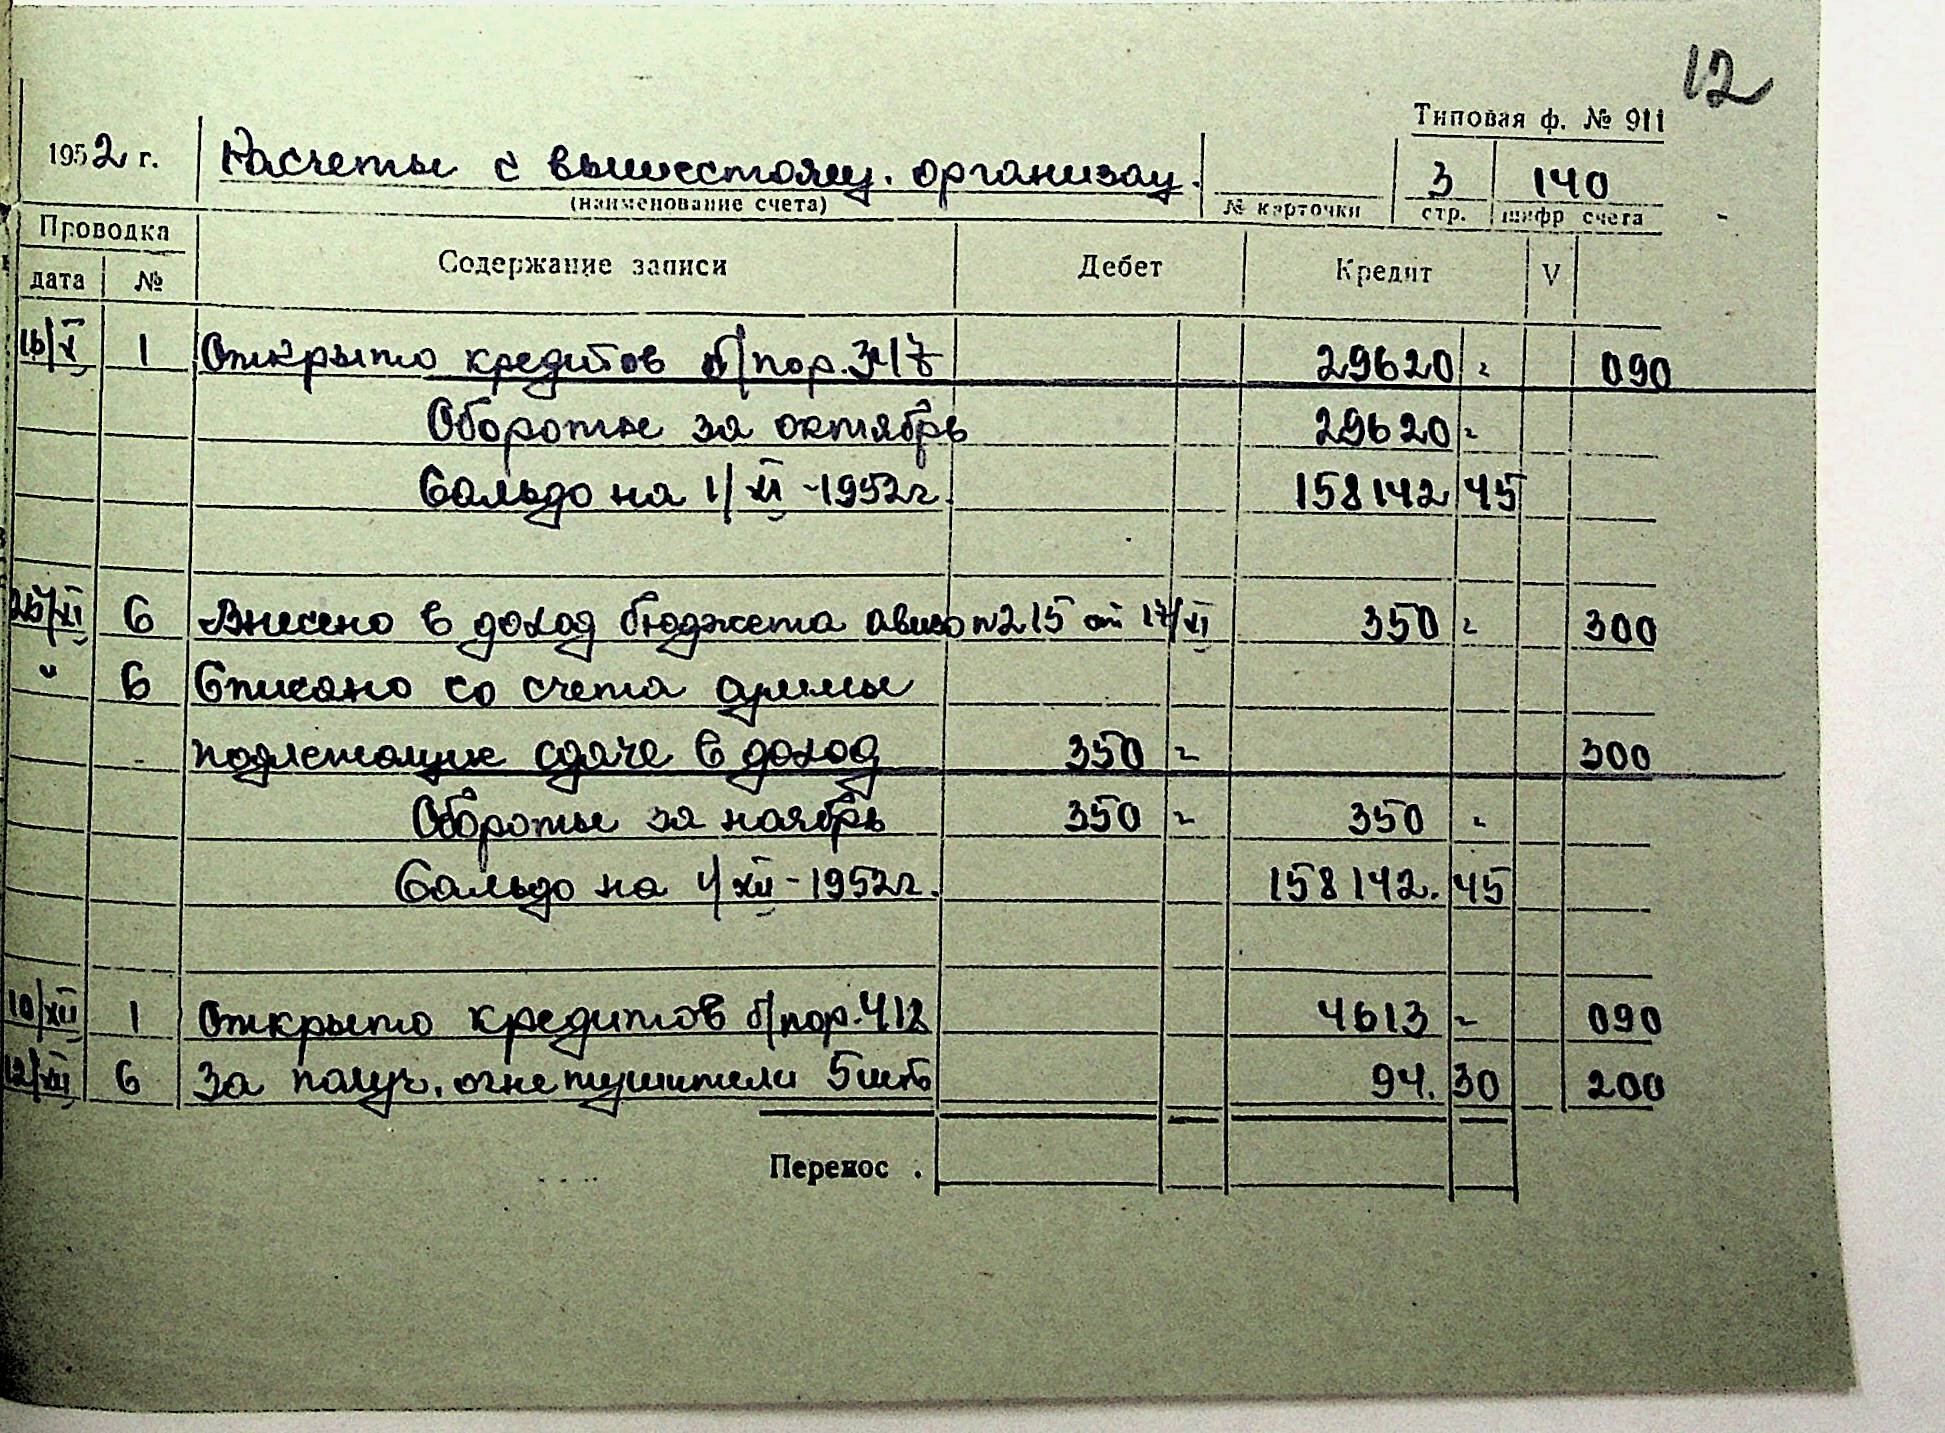 12
Типовая ф. № 911
1952 г. Расчеты с вышестоящ. организац. 3 140
(наименование счета) № карточки стр. шифр счета
Проводка Содержание записи Дебет Кредит V
дата №
16/X 1 Открыто кредитов б/пор. 347 29620 - 090
Обороты за октябрь 29620 -
Сальдо на 1/XI - 1952г. 158142 45
25/XI 6 Внесено в доход бюджета авизо №215 от 17/XI 350 - 300
" 6 Списано со счета суммы
подлежащие сдаче в доход 350 - 300
Обороты за ноябрь 350 - 350 -
Сальдо на 1/XII - 1952г. 158142. 45
10/XII 1 Открыто кредитов б/пор. 412 4613 - 090
12/XII 6 За получ. огнетушители 5шт 94. 30 200
Перенос .